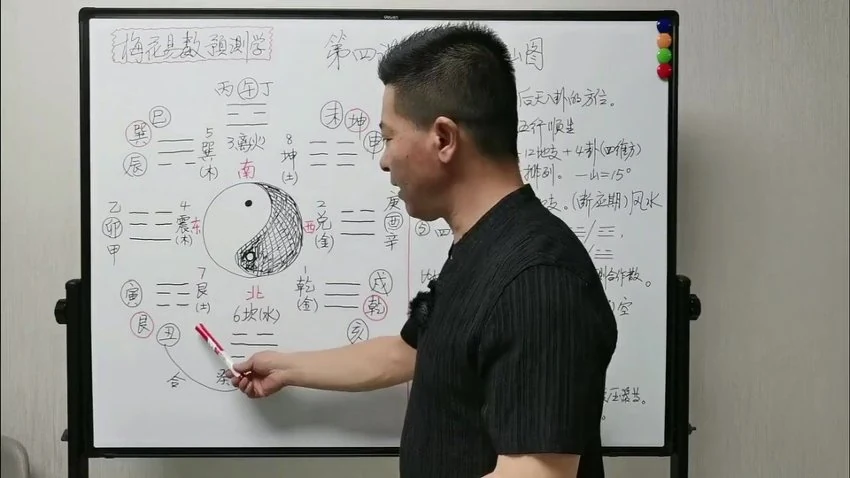 梅花易数预测学
第四 山图
丙午丁
巳
巽
辰
5
巽
(木)
3离(火)
8
坤
(土)
未坤申
南
乙
卯
甲
4
震
(木)
东
西
2
兑
(金)
庚
酉
辛
寅
艮
丑
7
艮
(土)
北
6坎(水)
1
乾
(金)
戌
乾
亥
合
癸
后天八卦的方位。
五行顺生
12地支+4卦(四维方)
排列。一山=15°
支。(断应期)风水
⑤四
合作数。
空